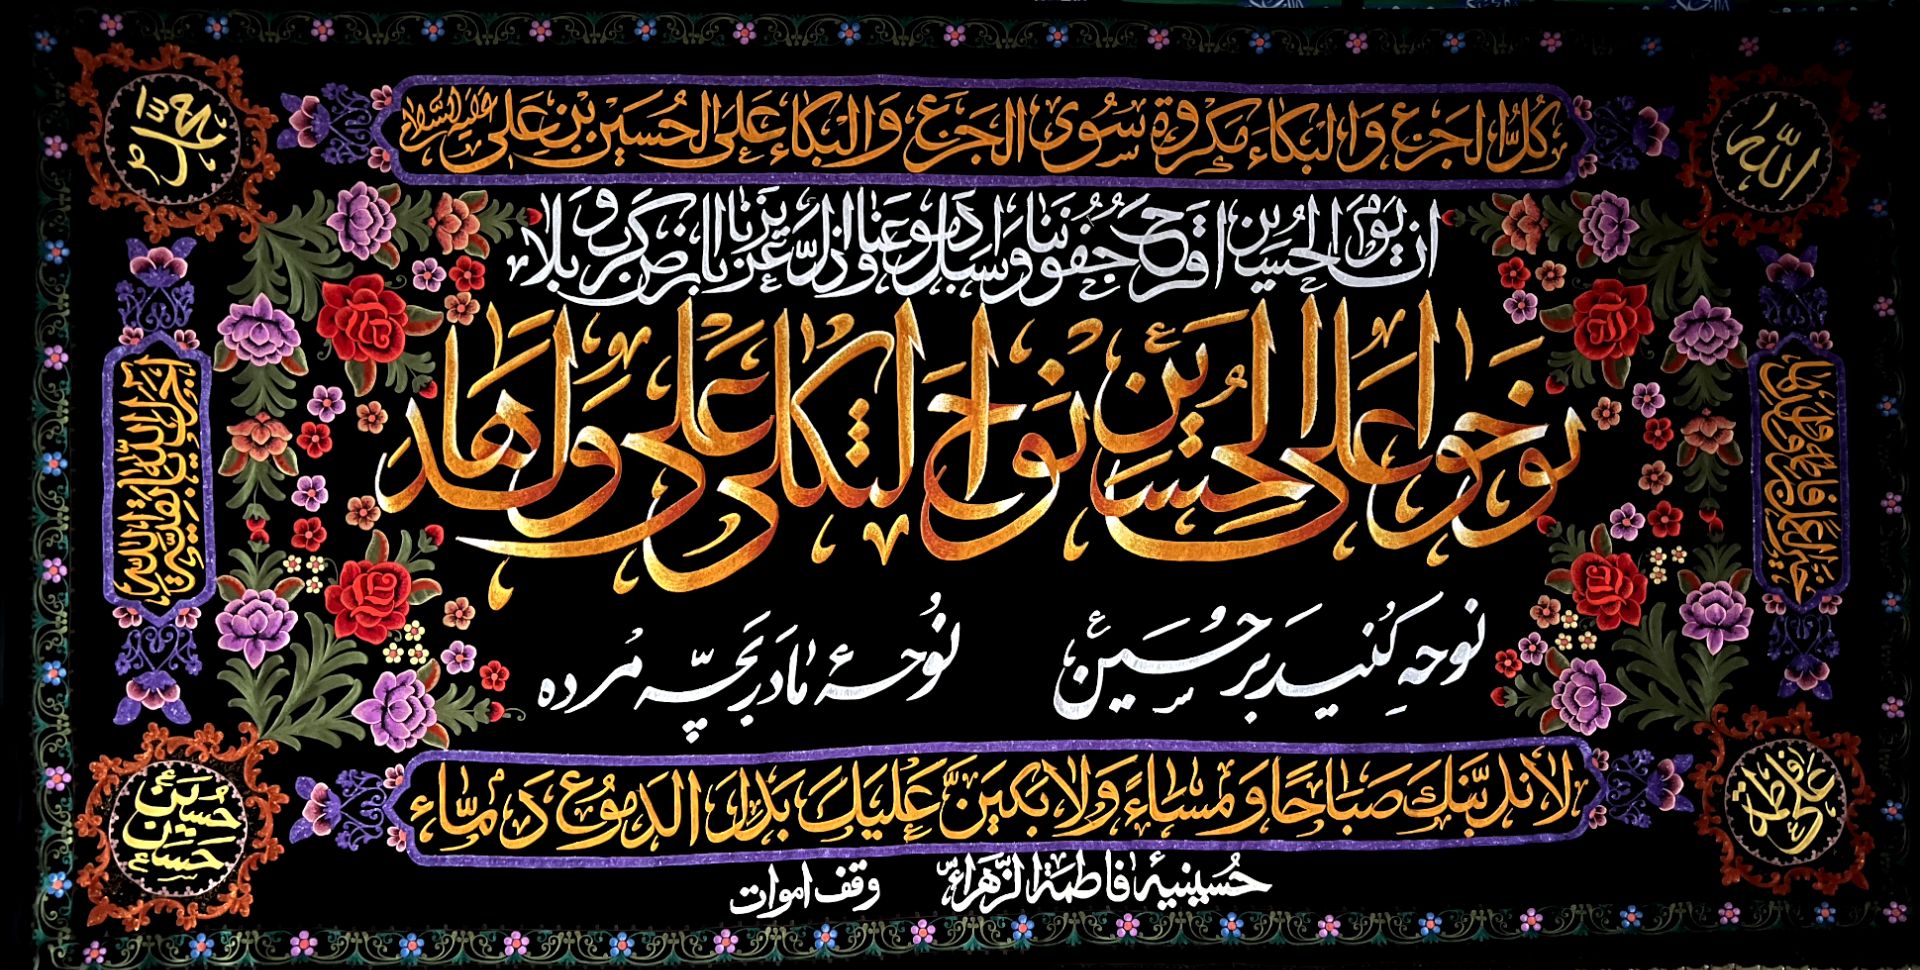 الله
محمد ص
كلّ الجزع والبكاء مكروه سوى الجزع والبكاء على الحسين بن علي عليه السلام
ان يوم الحسين اقرح جفوننا واسبل دموعنا واذلّ عزيزنا بارض كرب وبلا
نوحوا على الحسين ع نواح الثكلى على ولدها
نوحه کنید بر حسین ع نوحهٔ مادر بچّه مرده
لاندبنّك صباحًا ومساءً ولابكينّ عليك بدل الدموع دمّاء
حسینیهٔ فاطمة الزهراء وقف اموات
علی فاطمة
حسین حسن